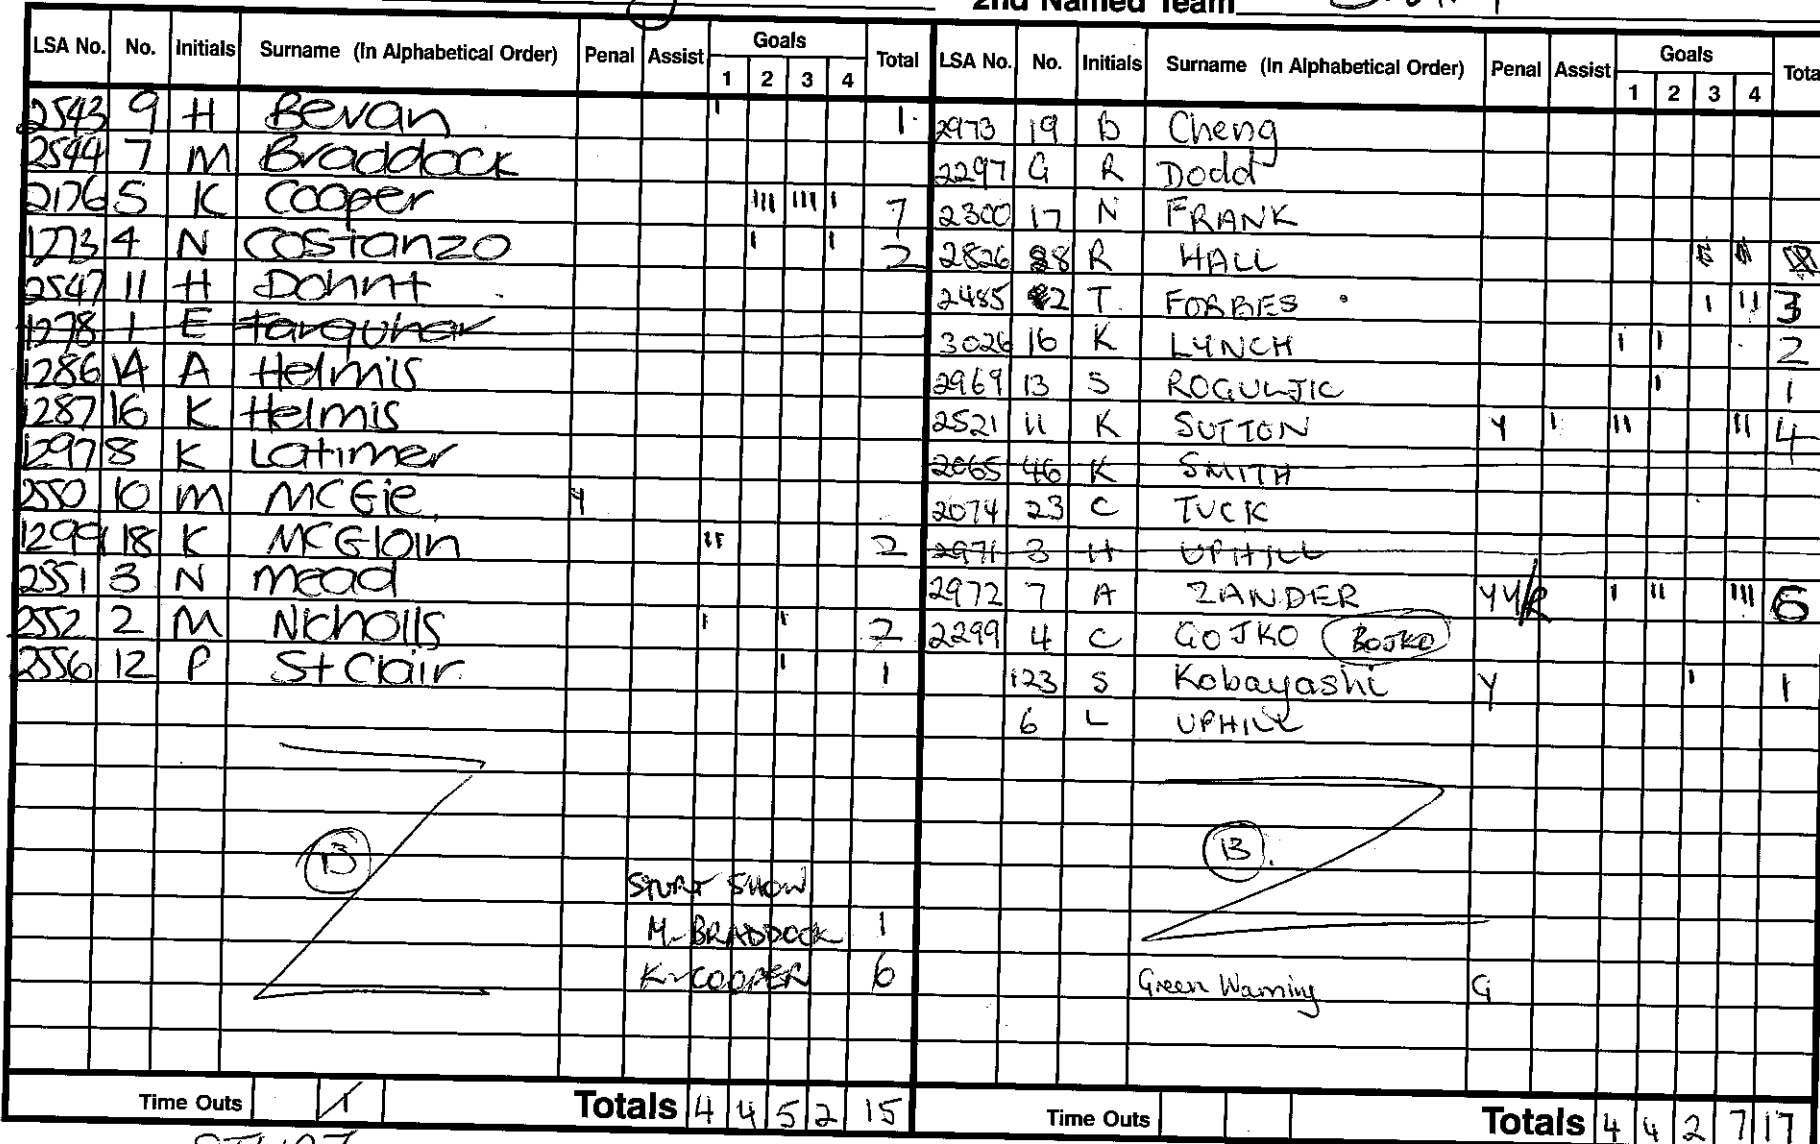 2nd Named Team
LSA No. No. Initials Surname (In Alphabetical Order) Penal Assist Goals 1 2 3 4 Total
2543 9 H Bevan 1 1
2544 7 M Braddock
2176 5 K Cooper III III I 7
1273 4 N Costanzo I I 2
2547 11 H Dohnt
1278 1 E Farquhar
1286 14 A Helmis
1287 16 K Helmis
1297 8 K Latimer
2550 10 M McGie Y
1299 18 K McGloin II 2
2551 3 N Mead
2552 2 M Nicholls I I 2
2556 12 P St Clair I 1
13
STURT SHOW
M. BRADDOCK 1
K. COOPER 6
Time Outs 1 Totals 4 4 5 2 15
LSA No. No. Initials Surname (In Alphabetical Order) Penal Assist Goals 1 2 3 4 Tota
2973 19 B Cheng
2297 G R Dodd
2300 17 N FRANK
2826 28 R HALL
2485 2 T FORBES I II 3
3026 16 K LYNCH I I 2
2969 13 S ROGULJIC I 1
2521 11 K SUTTON Y I II II 4
2065 46 K SMITH
2074 23 C TUCK
2971 3 H UPHILL
2972 7 A ZANDER YY/R I II III 6
2299 4 C GOJKO BOJKO
123 S Kobayashi Y I 1
6 L UPHILL
13.
Green Warning G
Time Outs Totals 4 4 2 7 17